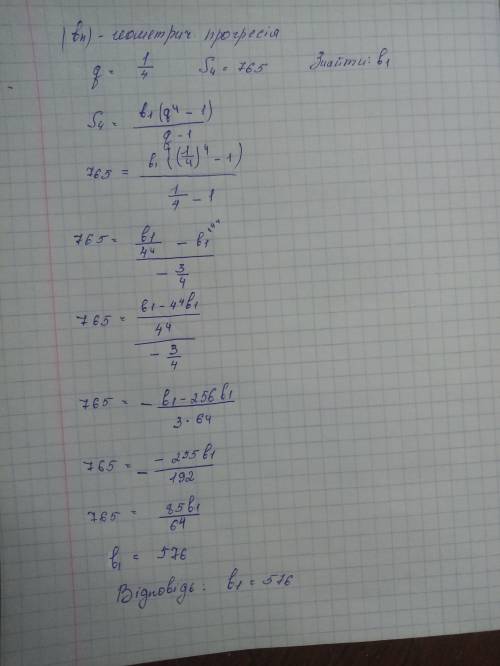 (bn) - геометрич прогресія
q = 1/4   S4 = 765   Знайти: b1
S4 = b1(q^4 - 1) / (q - 1)
765 = b1((1/4)^4 - 1) / (1/4 - 1)
765 = (b1/4^4 - b1^(4^4)) / (-3/4)
765 = ((b1 - 4^4b1)/4^4) / (-3/4)
765 = - (b1 - 256b1) / (3·64)
765 = - (-255b1) / 192
765 = 85b1 / 64
b1 = 576
Відповідь: b1 = 576